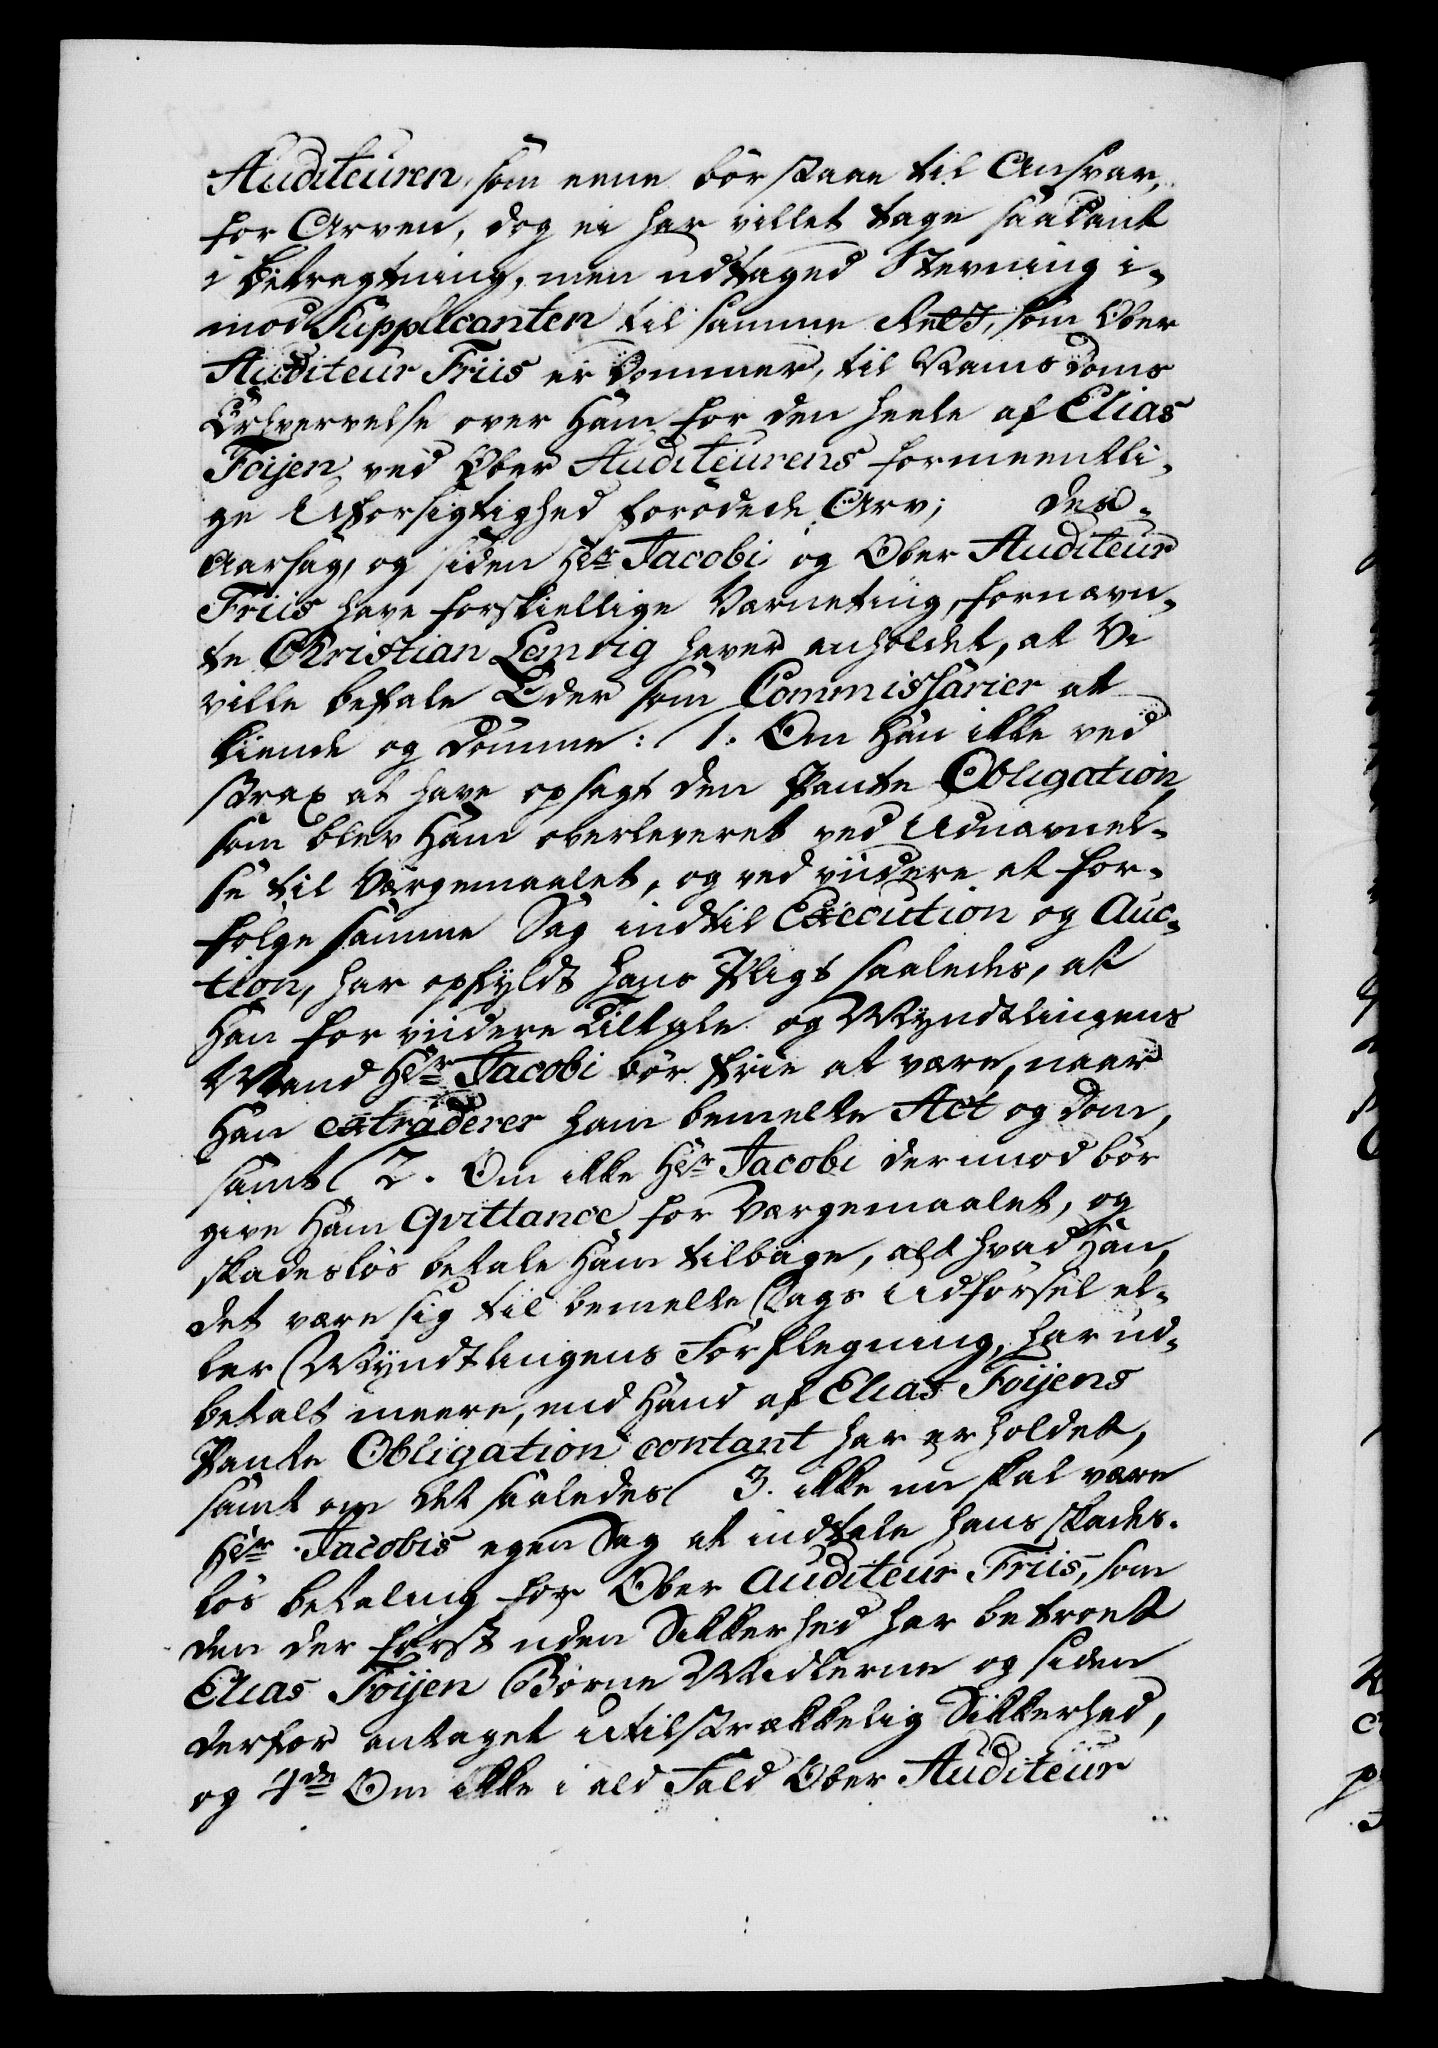 Auditeuren, som eene bör staae til Ansvar,
for Arven, dog ei har villet tage saadant
i betragtning, men udtaged Stevning i-
mod Supplicanten til samme Rett, som Ober
Auditeur Friis er Dommer, til Nams Doms
Erhvervelse over Ham for den heele af Elias
Föijen ved Ober Auditeurens formeentli-
ge Uforsigtighed forödede Arv; des-
aarsag, og siden Hr Jacobi og Ober Auditeur
Friis have forskiellige Varneting, fornævn-
te Christian Lemvig haver anholdet, at Vi
ville befale Eder som Commissarier at
kiende og dömme: 1. Om Han ikke ved
strax at have opsagt den Pante Obligation,
som blev Ham overleveret ved Udnævnel-
se til Værgemaalet, og ved viidere at for-
fölge samme Sag indtil Execution og Auc-
tion, har opfyldt hans Pligt saaledes, at
Han for viidere Tiltale og Myndtlingens
Mand Hr Jacobi bör frie at være, naar
Han extraderer ham bemelte Act og Dom,
samt 2. Om ikke Hr Jacobi derimod bör
give Ham Qvittance for Værgemaalet, og
skadeslös betale Ham tilbage, alt hvad Han,
det være sig til bemelte Sags Udförsel el-
ler Myndtlingens Forplegning, har ud-
betalt meere, end Hand af Elias Föijens
Pante Obligation contant har erholdet,
samt om det saaledes 3. ikke nu skal være
Hr Jacobis egen Sag at indtale hans skades-
lös betaling hos Ober Auditeur Friis, som
den der först uden Sikkerhed har betroet
Elias Föijen Börne Midlerne og siden
derfor antaget utilstrækkelig Sikkerhed,
og 4de Om ikke i ald Fald Ober Auditeur